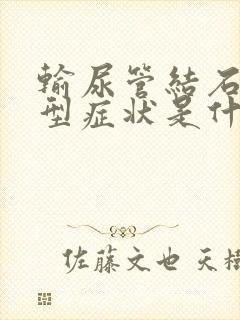 輸尿管結石
型症狀是什
佐藤文也 天樹